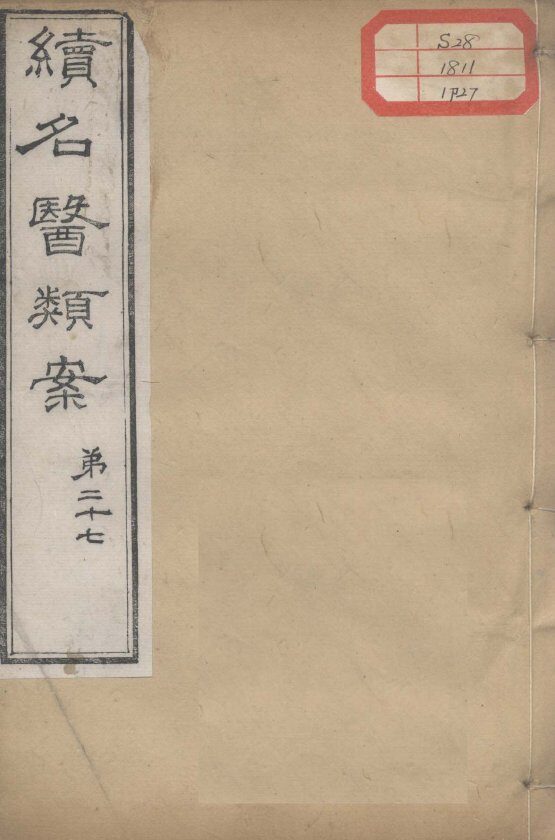 續名醫類案
第二十七
S28
1811
1P27